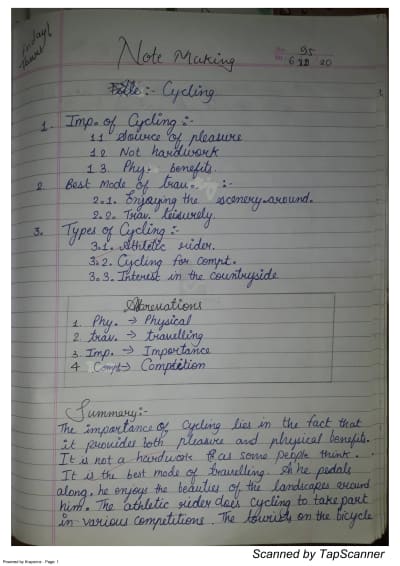 Note Making
95
Title:- Cycling
1. Imp. of Cycling :-
1.1 Source of pleasure
1.2 Not hardwork
1.3. Phy. benefits.
2. Best Mode of trav. :-
2.1. Enjoying the scenery around.
2.2. Trav. leisurely.
3. Types of Cycling :-
3.1. Athletic rider.
3.2. Cycling for compt.
3.3. Interest in the countryside
Abbreviations
1. Phy. → Physical
2. trav. → travelling
3. Imp. → Importance
4. Compt → Competition
Summary:-
The importance of cycling lies in the fact that
it provides both pleasure and physical benefits.
It is not a hardwork as some people think.
It is the best mode of travelling. As he pedals
along, he enjoys the beauties of the landscapes around
him. The athletic rider does cycling to take part
in various competitions. The tourists on the bicycle
Scanned by TapScanner
Powered by Knaporna - Page: 1